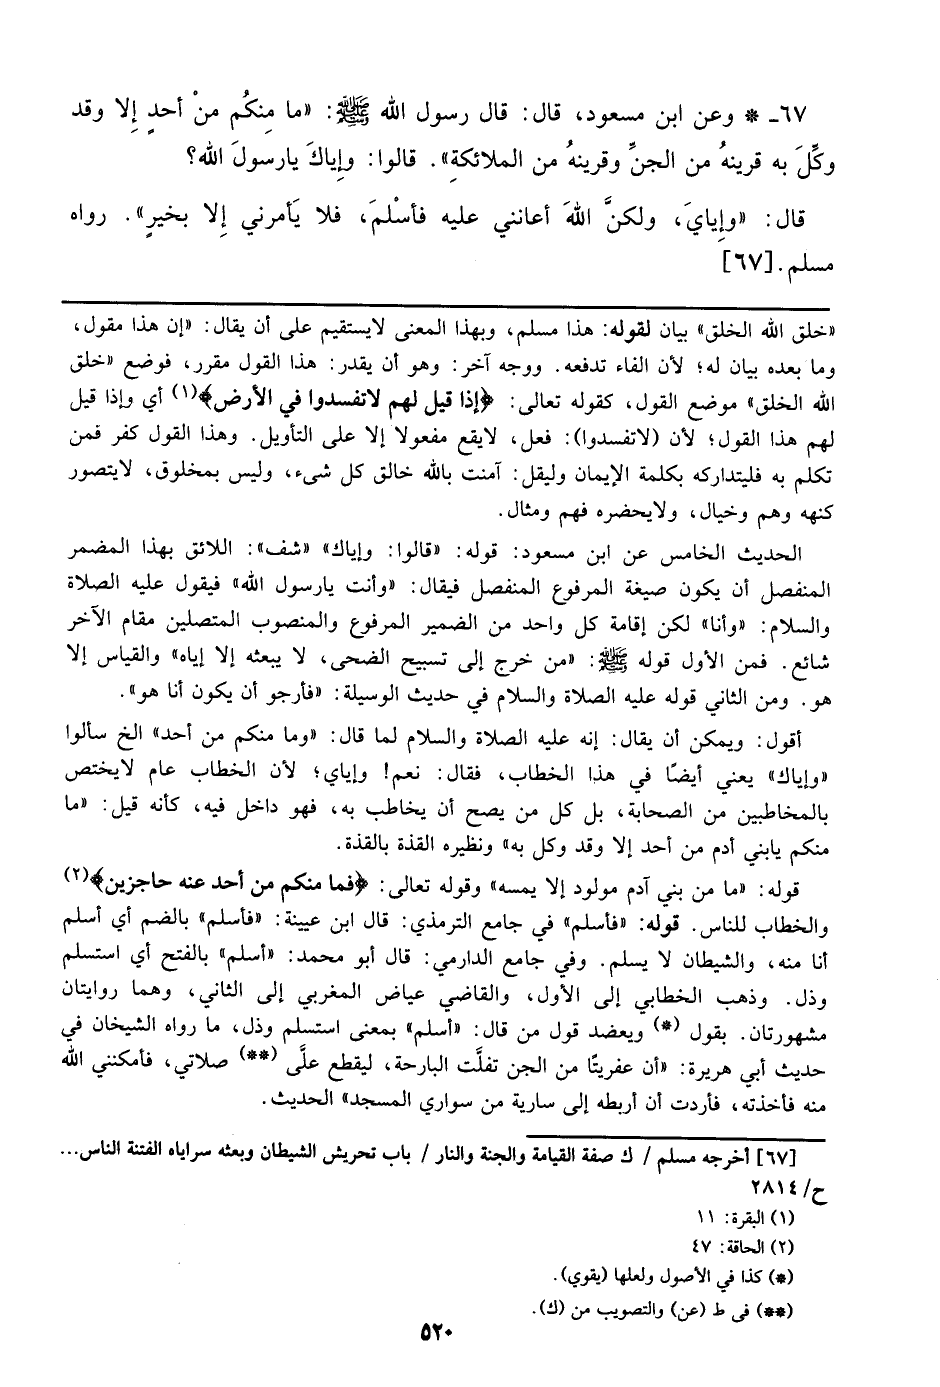 ٦٧ـ * وعن ابن مسعود، قال: قال رسول الله ﷺ: «ما مِنكُم منْ أحدٍ إِلا وقد
وكِّلَ به قرينهُ من الجنِّ وقرينهُ من الملائكةِ». قالوا: وإِياكَ يارسولَ الله؟
قال: «وإِيايَ، ولكنَّ اللهَ أعانني عليه فأسْلمَ، فلا يَأمرني إِلا بخيرٍ». رواه
مسلم. [٦٧]
«خلق الله الخلق» بيان لقوله: هذا مسلم، وبهذا المعنى لايستقيم على أن يقال: «إن هذا مقول،
وما بعده بيان له؛ لأن الفاء تدفعه. ووجه آخر: وهو أن يقدر: هذا القول مقرر، فوضع «خلق
الله الخلق» موضع القول، كقوله تعالى: ﴿إذا قيل لهم لاتفسدوا في الأرض﴾(١) أي وإذا قيل
لهم هذا القول؛ لأن (لاتفسدوا): فعل، لايقع مفعولا إلا على التأويل. وهذا القول كفر فمن
تكلم به فليتداركه بكلمة الإيمان وليقل: آمنت بالله خالق كل شيء، وليس بمخلوق، لايتصور
كنهه وهم وخيال، ولايحضره فهم ومثال.
الحديث الخامس عن ابن مسعود: قوله: «قالوا: وإياك» «شف»: اللائق بهذا المضمر
المنفصل أن يكون صيغة المرفوع المنفصل فيقال: «وأنت يارسول الله» فيقول عليه الصلاة
والسلام: «وأنا» لكن إقامة كل واحد من الضمير المرفوع والمنصوب المتصلين مقام الآخر
شائع. فمن الأول قوله ﷺ: «من خرج إلى تسبيح الضحى، لا يبعثه إلا إياه» والقياس إلا
هو. ومن الثاني قوله عليه الصلاة والسلام في حديث الوسيلة: «فأرجو أن يكون أنا هو».
أقول: ويمكن أن يقال: إنه عليه الصلاة والسلام لما قال: «وما منكم من أحد» الخ سألوا
«وإياك» يعني أيضًا في هذا الخطاب، فقال: نعم! وإياي؛ لأن الخطاب عام لايختص
بالمخاطبين من الصحابة، بل كل من يصح أن يخاطب به، فهو داخل فيه، كأنه قيل: «ما
منكم يابني أدم من أحد إلا وقد وكل به» ونظيره القذة بالقذة.
قوله: «ما من بني آدم مولود إلا يمسه» وقوله تعالى: ﴿فما منكم من أحد عنه حاجزين﴾(٢)
والخطاب للناس. قوله: «فأسلم» في جامع الترمذي: قال ابن عيينة: «فأسلم» بالضم أي أسلم
أنا منه، والشيطان لا يسلم. وفي جامع الدارمي: قال أبو محمد: «أسلم» بالفتح أي استسلم
وذل. وذهب الخطابي إلى الأول، والقاضي عياض المغربي إلى الثاني، وهما روايتان
مشهورتان. بقول (*) ويعضد قول من قال: «أسلم» بمعنى استسلم وذل، ما رواه الشيخان في
حديث أبي هريرة: «أن عفريتًا من الجن تفلَّت البارحة، ليقطع علَّى (**) صلاتي، فأمكنني الله
منه فأخذته، فأردت أن أربطه إلى سارية من سواري المسجد» الحديث.
[٦٧] أخرجه مسلم / ك صفة القيامة والجنة والنار / باب تحريش الشيطان وبعثه سراياه الفتنة الناس...
ح/ ٢٨١٤
(١) البقرة: ١١
(٢) الحاقة: ٤٧
(*) كذا في الأصول ولعلها (يقوي).
(**) فى ط (عن) والتصويب من (ك).
٥٢٠